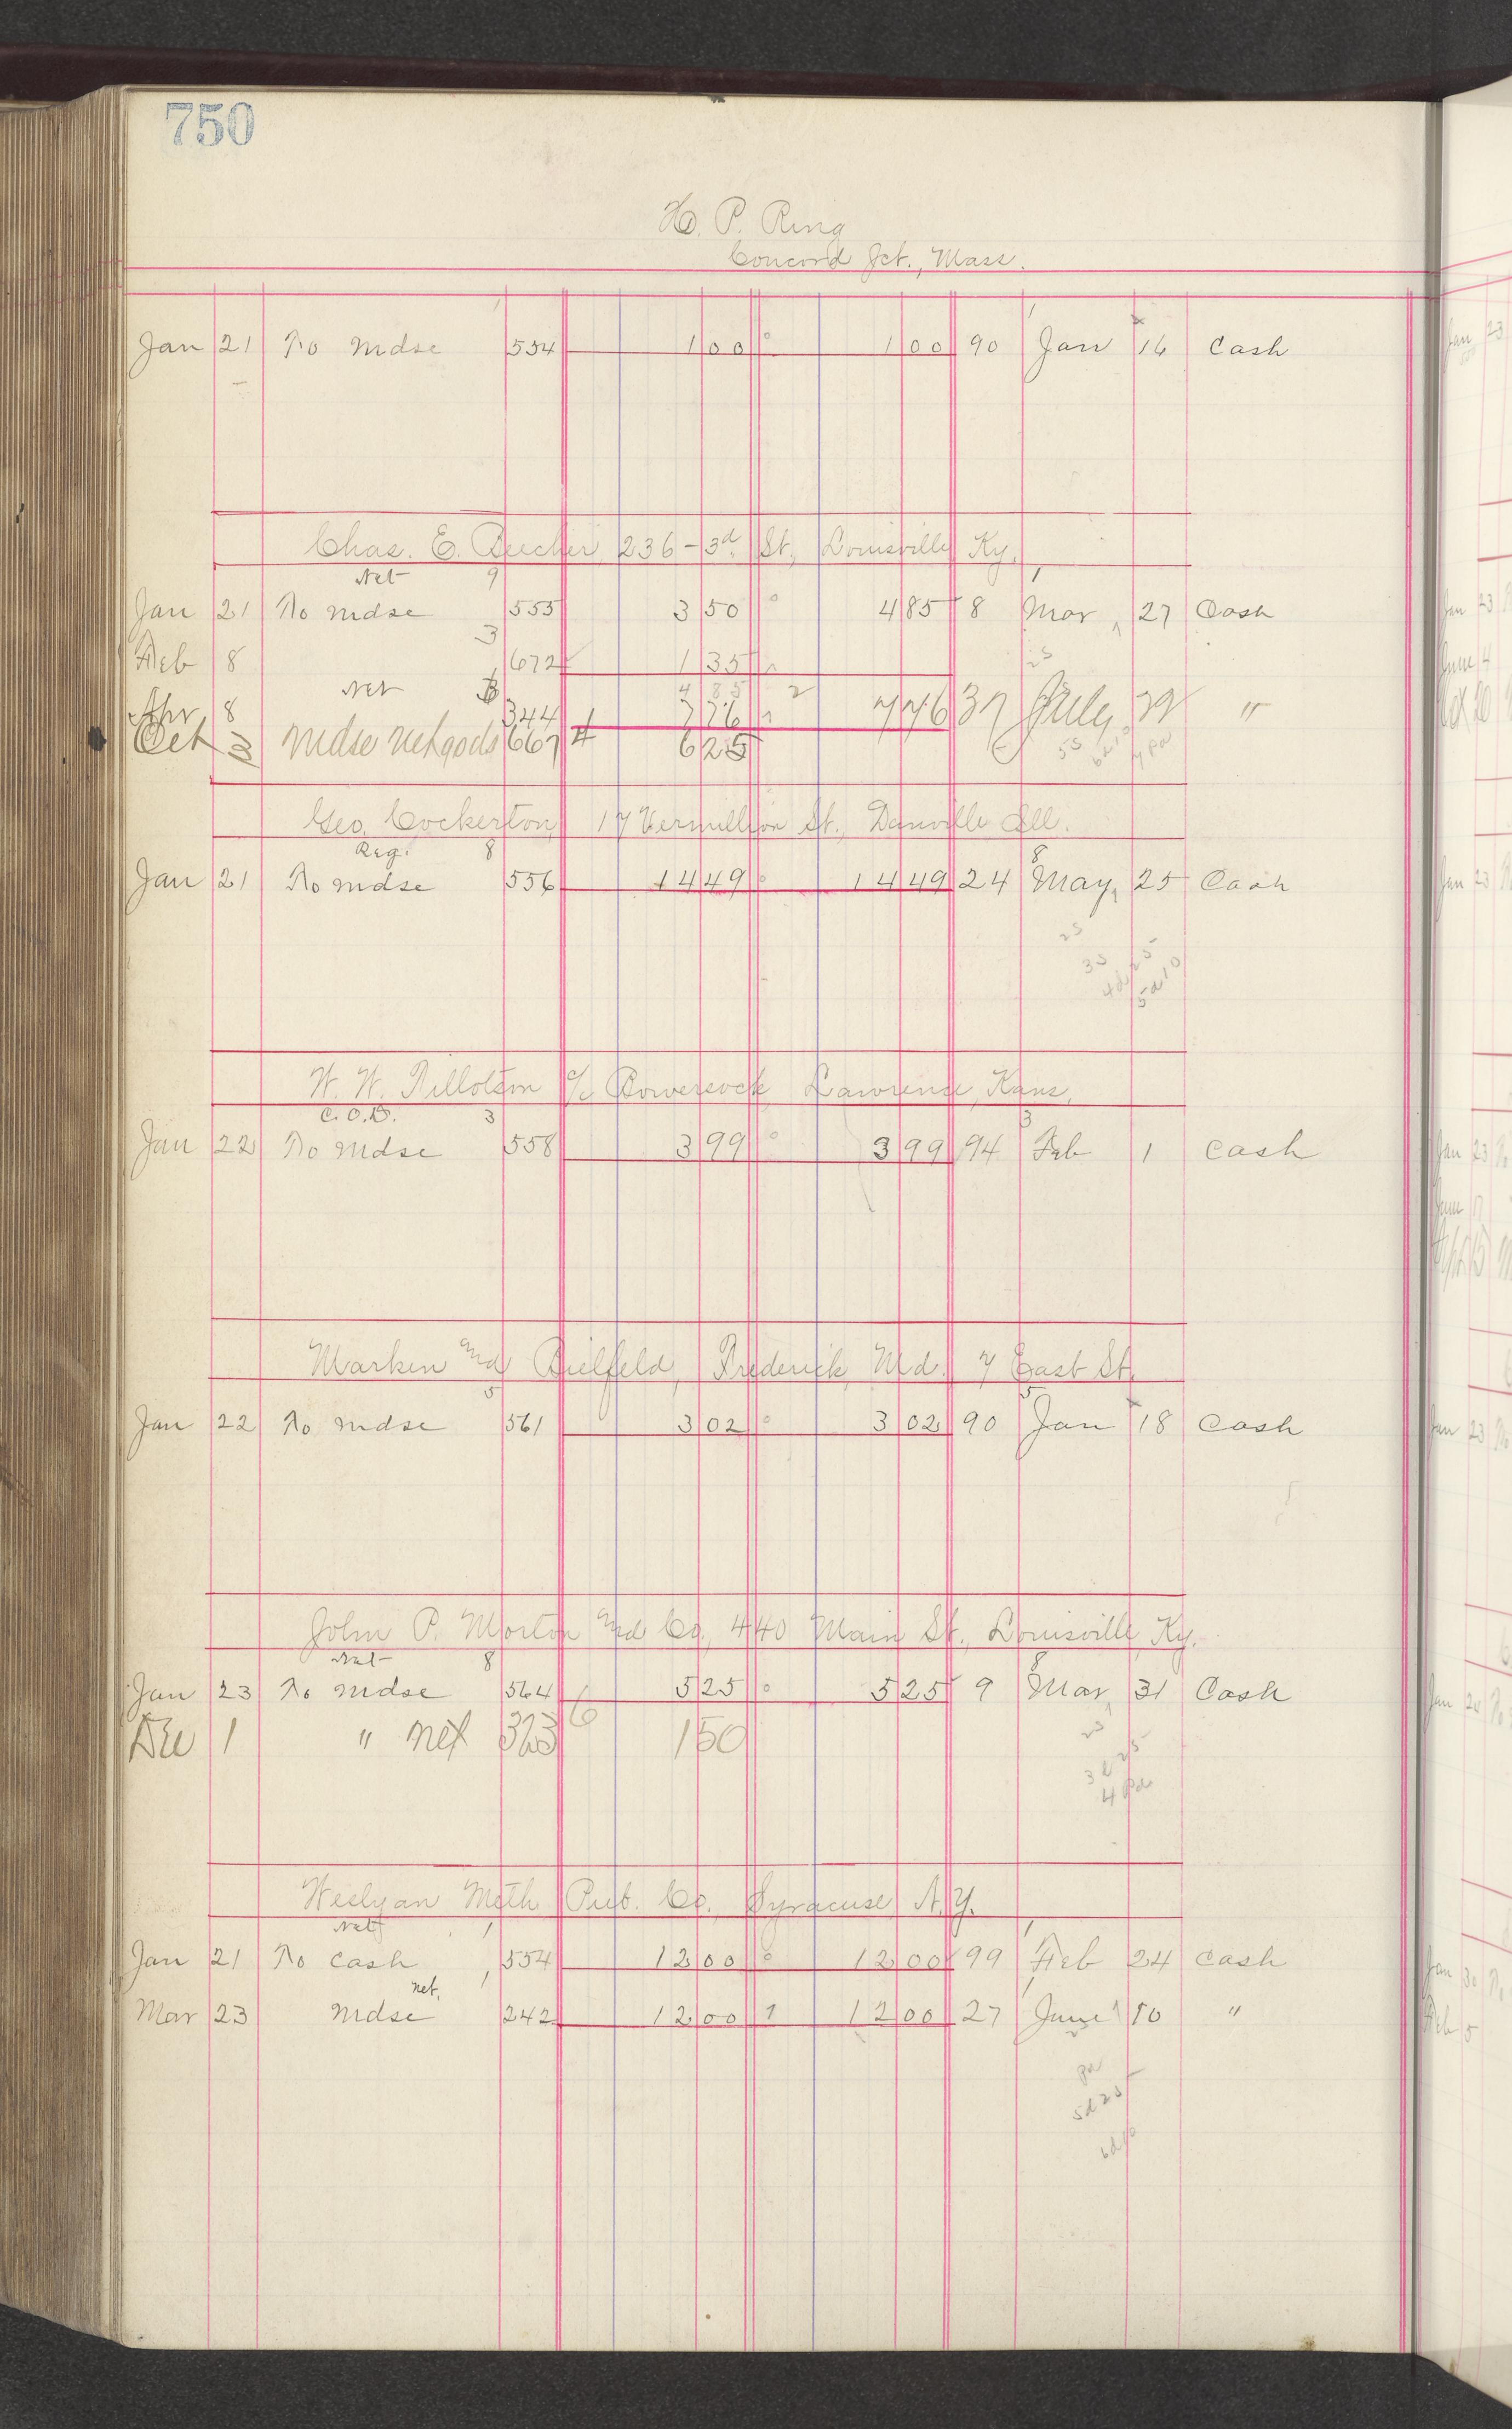 750
H. P. Ring
Concord Jct., Mass.
Jan 21 To mdse 554 1 00 0 1 00 90 Jan 16 Cash
Chas. E. 236-3d. St. Louisville Ky.
Net 9
Jan 21 To mdse 555 3 50 0 4 85 8 Mar 27 Cash
3
Feb 8 672 1 35
Net 4 85 2
Apr 8 344 7 76 7 76 37 July 29 "
Oct 3 mdse net goods 667 4 6 25
Geo. Cockerton 17 Vermillion St., Danville Ill.
Reg. 8 8
Jan 21 To mdse 556 14 49 0 14 49 24 May 25 Cash
25
33
W. W. Tillotson c/o Bowersock Lawrence, Kans.
C.O.D. 3 3
Jan 22 To mdse 558 3 99 0 3 99 94 Feb 1 Cash
Marken and Bielfeld, Frederick Md. 7 East St.
5 5
Jan 22 To mdse 561 3 02 0 3 02 90 Jan 18 Cash
John P. Morton and Co, 440 Main St., Louisville Ky.
Net 8 8
Jan 23 To mdse 564 5 25 0 5 25 9 Mar 31 Cash
Dec 1 " net 323 6 1 50
Weslyan Meth Pub. Co., Syracuse N.Y.
Net 1 1
Jan 21 To cash 554 12 00 0 12 00 99 Feb 24 Cash
net. 1
Mar 23 mdse 242 12 00 1 12 00 27 June 10 "
pa
5d25
6d10